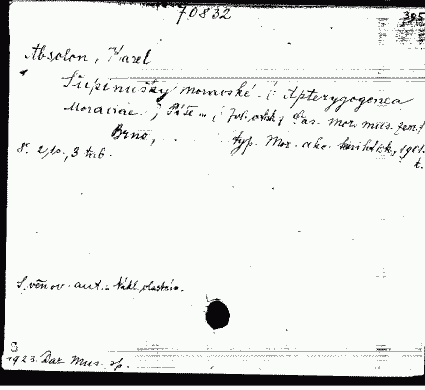 70832
395
Absolon, Karel
Šupinušky moravské. i Apterygogenea
Moraviae. ; Píše ... ; Zvl. otisk
Čas. Mor. mus. zem. 1
Brno, typ. Mor. akc. knihtisk, 1901.
8°. 2, to., 3 tab.
t.
S věnov. aut. - Nákl. vlastním.
S
1923. Dar Mus. sp.